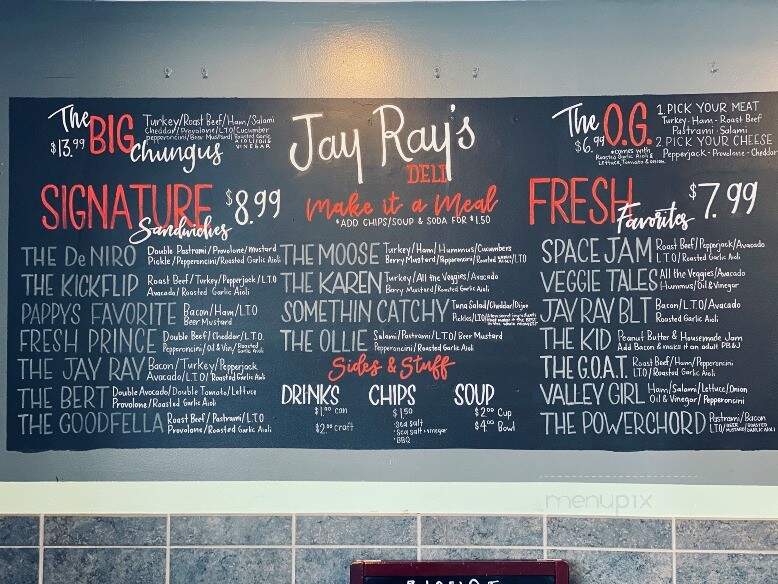 The BIG Chungus
$13.99
Turkey/Roast Beef/Ham/Salami
Cheddar/Provolone/L.T.O/Cucumber
Pepperoncini/Beer Mustard/Roasted Garlic
Aioli/Oil &
VINEGAR
Jay Ray's
DELI
Make it a Meal
*ADD CHIPS/SOUP & SODA FOR $1.50
The O.G.
$6.99
*comes with
Roasted Garlic Aioli &
Lettuce, Tomato & onion
1. PICK YOUR MEAT
Turkey - Ham - Roast Beef
Pastrami - Salami
2 PICK YOUR CHEESE
Pepperjack - Provolone - Cheddar
SIGNATURE
Sandwiches
$8.99
THE De NIRO Double Pastrami/Provolone/Mustard
Pickle/Pepperoncini/Roasted Garlic Aioli
THE KICKFLIP Roast Beef/Turkey/Pepperjack/L.T.O
Avocado/Roasted Garlic Aioli
PAPPYS FAVORITE Bacon/Ham/LTO
Beer Mustard
FRESH PRINCE Double Beef/Cheddar/L.T.O.
Pepperoncini/Oil & Vin/Roasted Garlic Aioli
THE JAY RAY Bacon/Turkey/Pepperjack
Avocado/L.T.O/Roasted Garlic Aioli
THE BERT Double Avocado/Double Tomato/Lettuce
Provolone/Roasted Garlic Aioli
THE GOODFELLA Roast Beef/Pastrami/L.T.O
Provolone/Roasted Garlic Aioli
THE MOOSE Turkey/Ham/Hummus/Cucumbers
Berry Mustard/Pepperoncini/Roasted Garlic Aioli/LTO
THE KAREN Turkey/All the Veggies/Avocado
Berry Mustard/Roasted Garlic Aioli
SOMETHIN CATCHY Tuna Salad/Cheddar/Dijon
Pickles/LTO
THE OLLIE Salami/Pastrami/L.T.O/Beer Mustard
Pepperoncini/Roasted Garlic Aioli
Sides & Stuff
DRINKS
$1.00 can
$2.00 craft
CHIPS
$1.50
•Sea salt
•Sea salt & vinegar
•BBQ
SOUP
$2.00 Cup
$4.00 Bowl
FRESH
Favorites
$7.99
SPACE JAM Roast Beef/Pepperjack/Avocado
L.T.O/Roasted Garlic Aioli
VEGGIE TALES All the Veggies/Avocado
Hummus/Oil & Vinegar
JAY RAY BLT Bacon/L.T.O/Avocado
Roasted Garlic Aioli
THE KID Peanut Butter & Housemade Jam
Add Bacon & make it an adult PB&J
THE G.O.A.T. Roast Beef/Ham/Pepperoncini
L.T.O/Roasted Garlic Aioli
VALLEY GIRL Ham/Salami/Lettuce/Onion
Oil & Vinegar/Pepperoncini
THE POWERCHORD Pastrami/Bacon
L.T.O/BEER MUSTARD/ROASTED GARLIC AIOLI
menupix